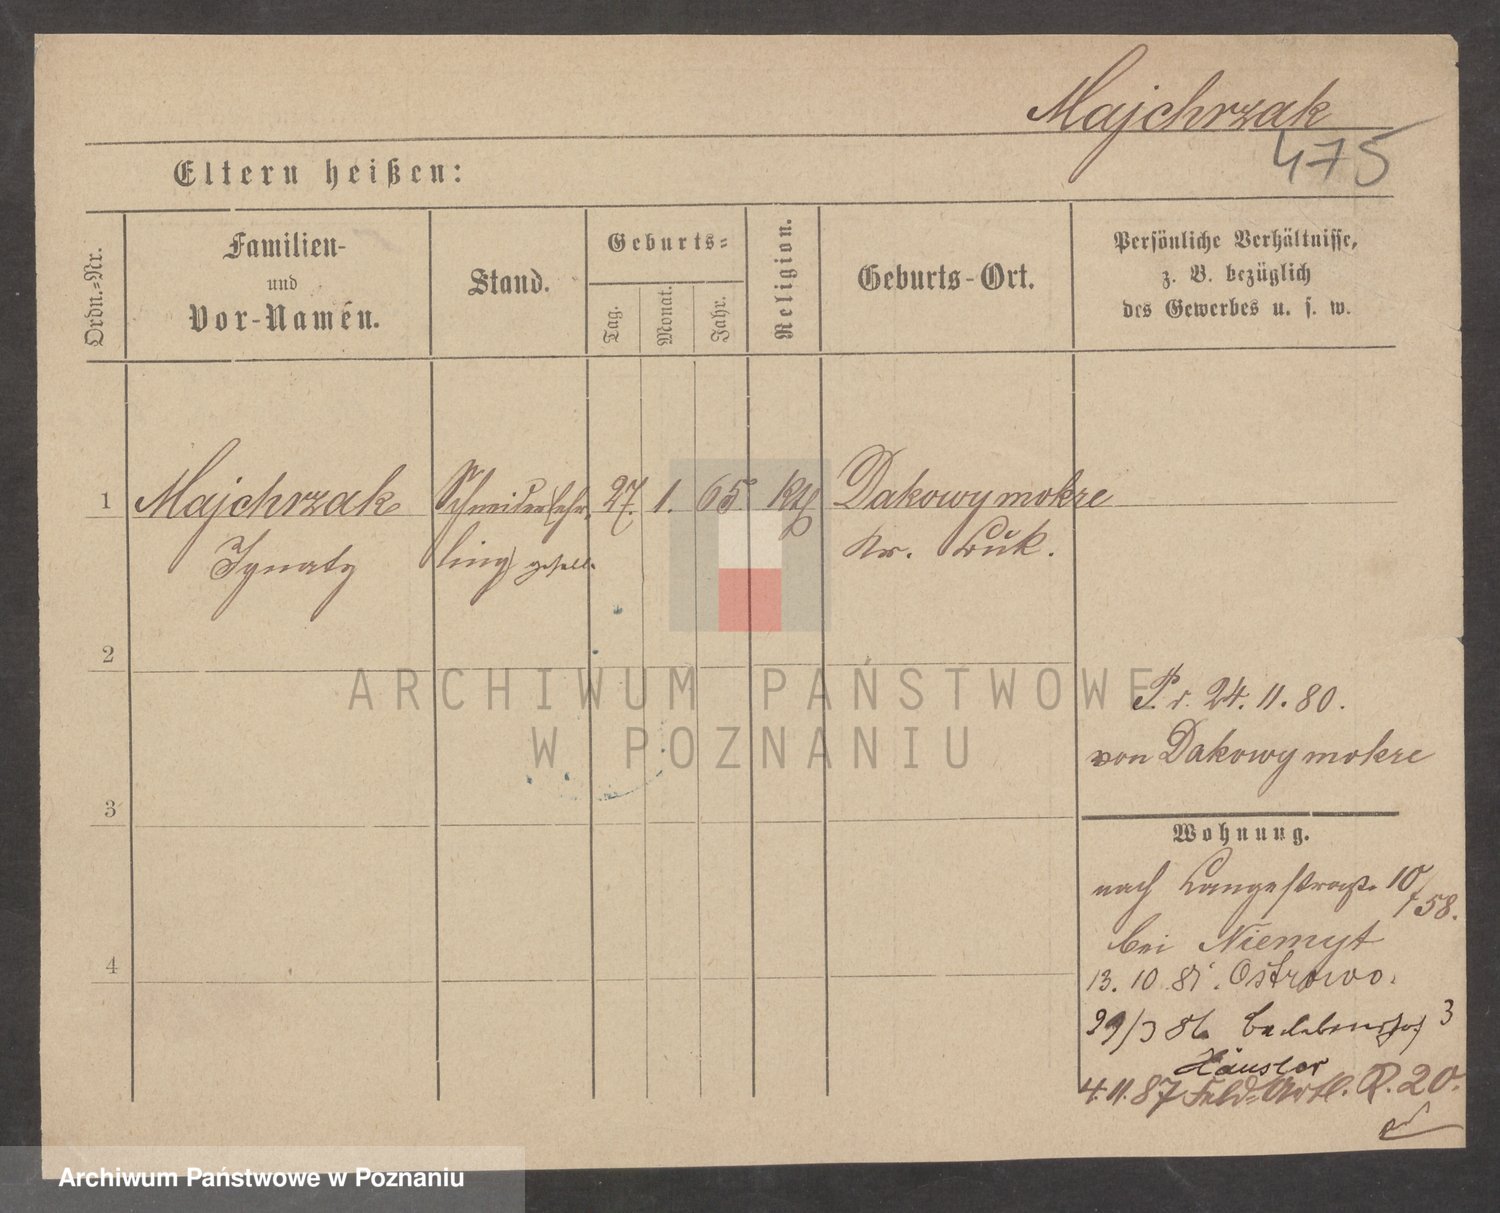 Majchrzak
475
Eltern heißen:
Ordn.-Nr.
Familien-
und
Vor-Namen.
Stand.
Geburts-
Tag.
Monat.
Jahr.
Religion.
Geburts-Ort.
Persönliche Verhältnisse,
z. B. bezüglich
des Gewerbes u. s. w.
1 Majchrzak Schneiderlehr- 27. 1. 65 Kth Dakowy mokre
Ignatz ling gesell. Kr. Buk.
2
P. r. 24. 11. 80.
von Dakowy mokre
ARCHIWUM PAŃSTWOWE
W POZNANIU
3
Wohnung.
nach Langestraße 10/
/58.
bei Niemyt
4
13. 10. 81. Ostrowo.
29/3 86 3
Häusler
4. 11. 87 Feld-Artl. R. 20.
Archiwum Państwowe w Poznaniu